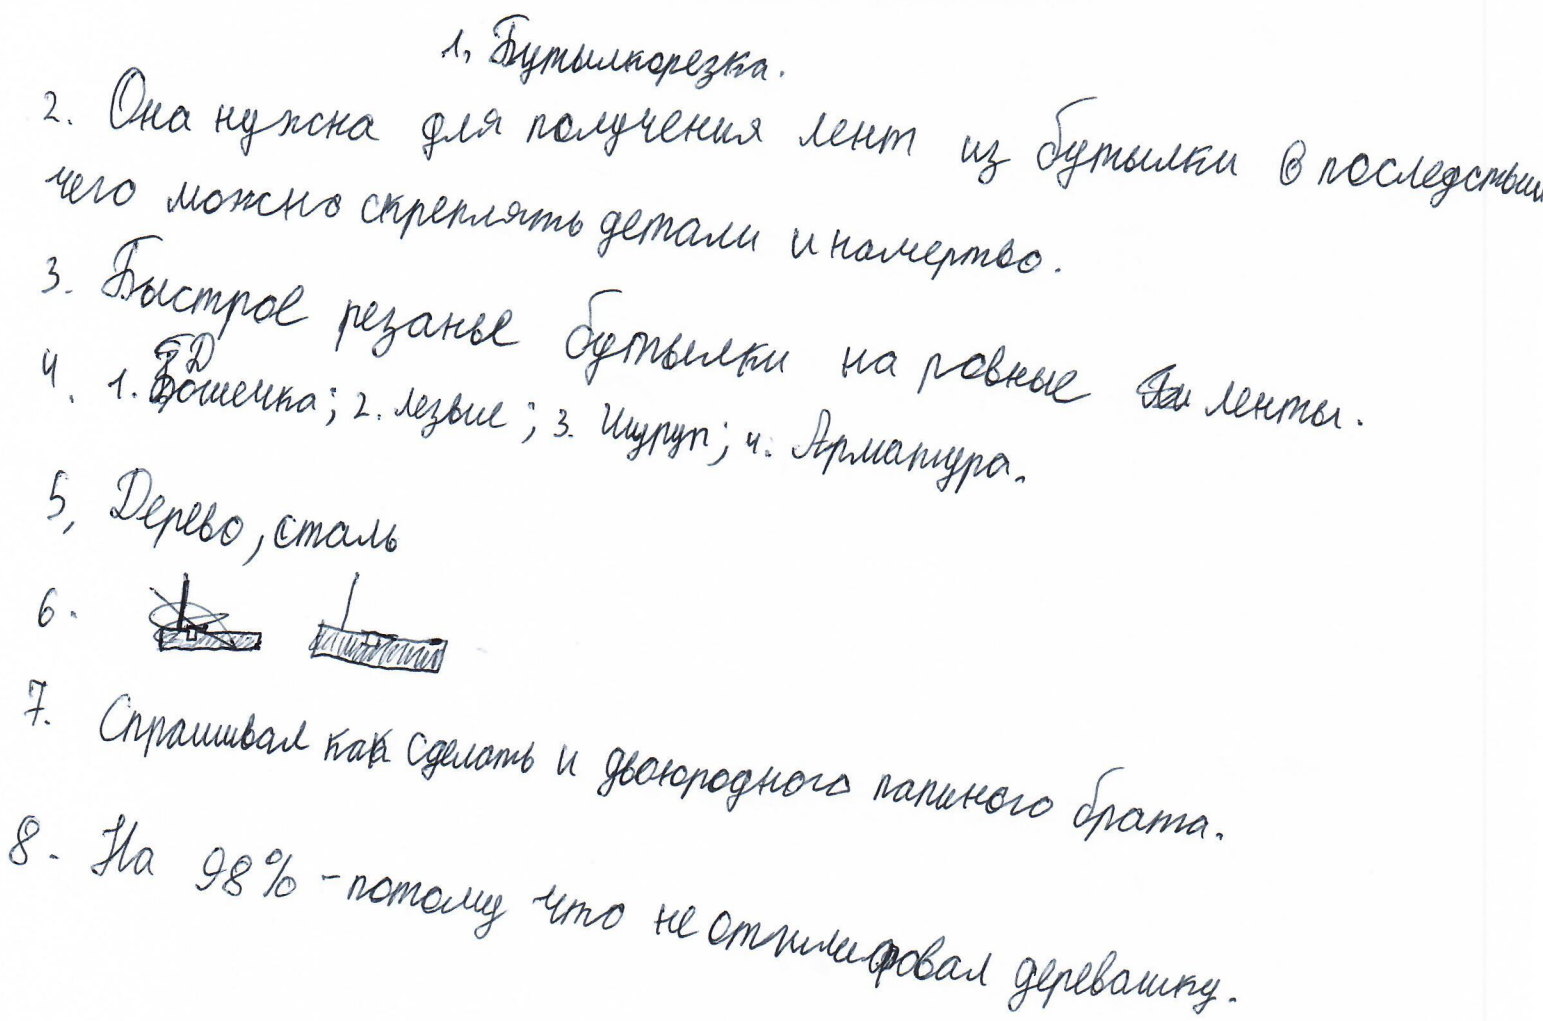 1. Бутылкорезка.
2. Она нужна для получения лент из бутылки в последствии
чего можно скреплять детали и намертво.
3. Быстрое резанье бутылки на ровные ленты.
4. 1. Дошечка; 2. лезвие; 3. Шуруп; 4. Арматура.
5, Дерево, сталь
6.
7. Спрашивал как сделать и двоюродного папиного брата.
8. На 98% - потому что не отшлифовал деревяшку.